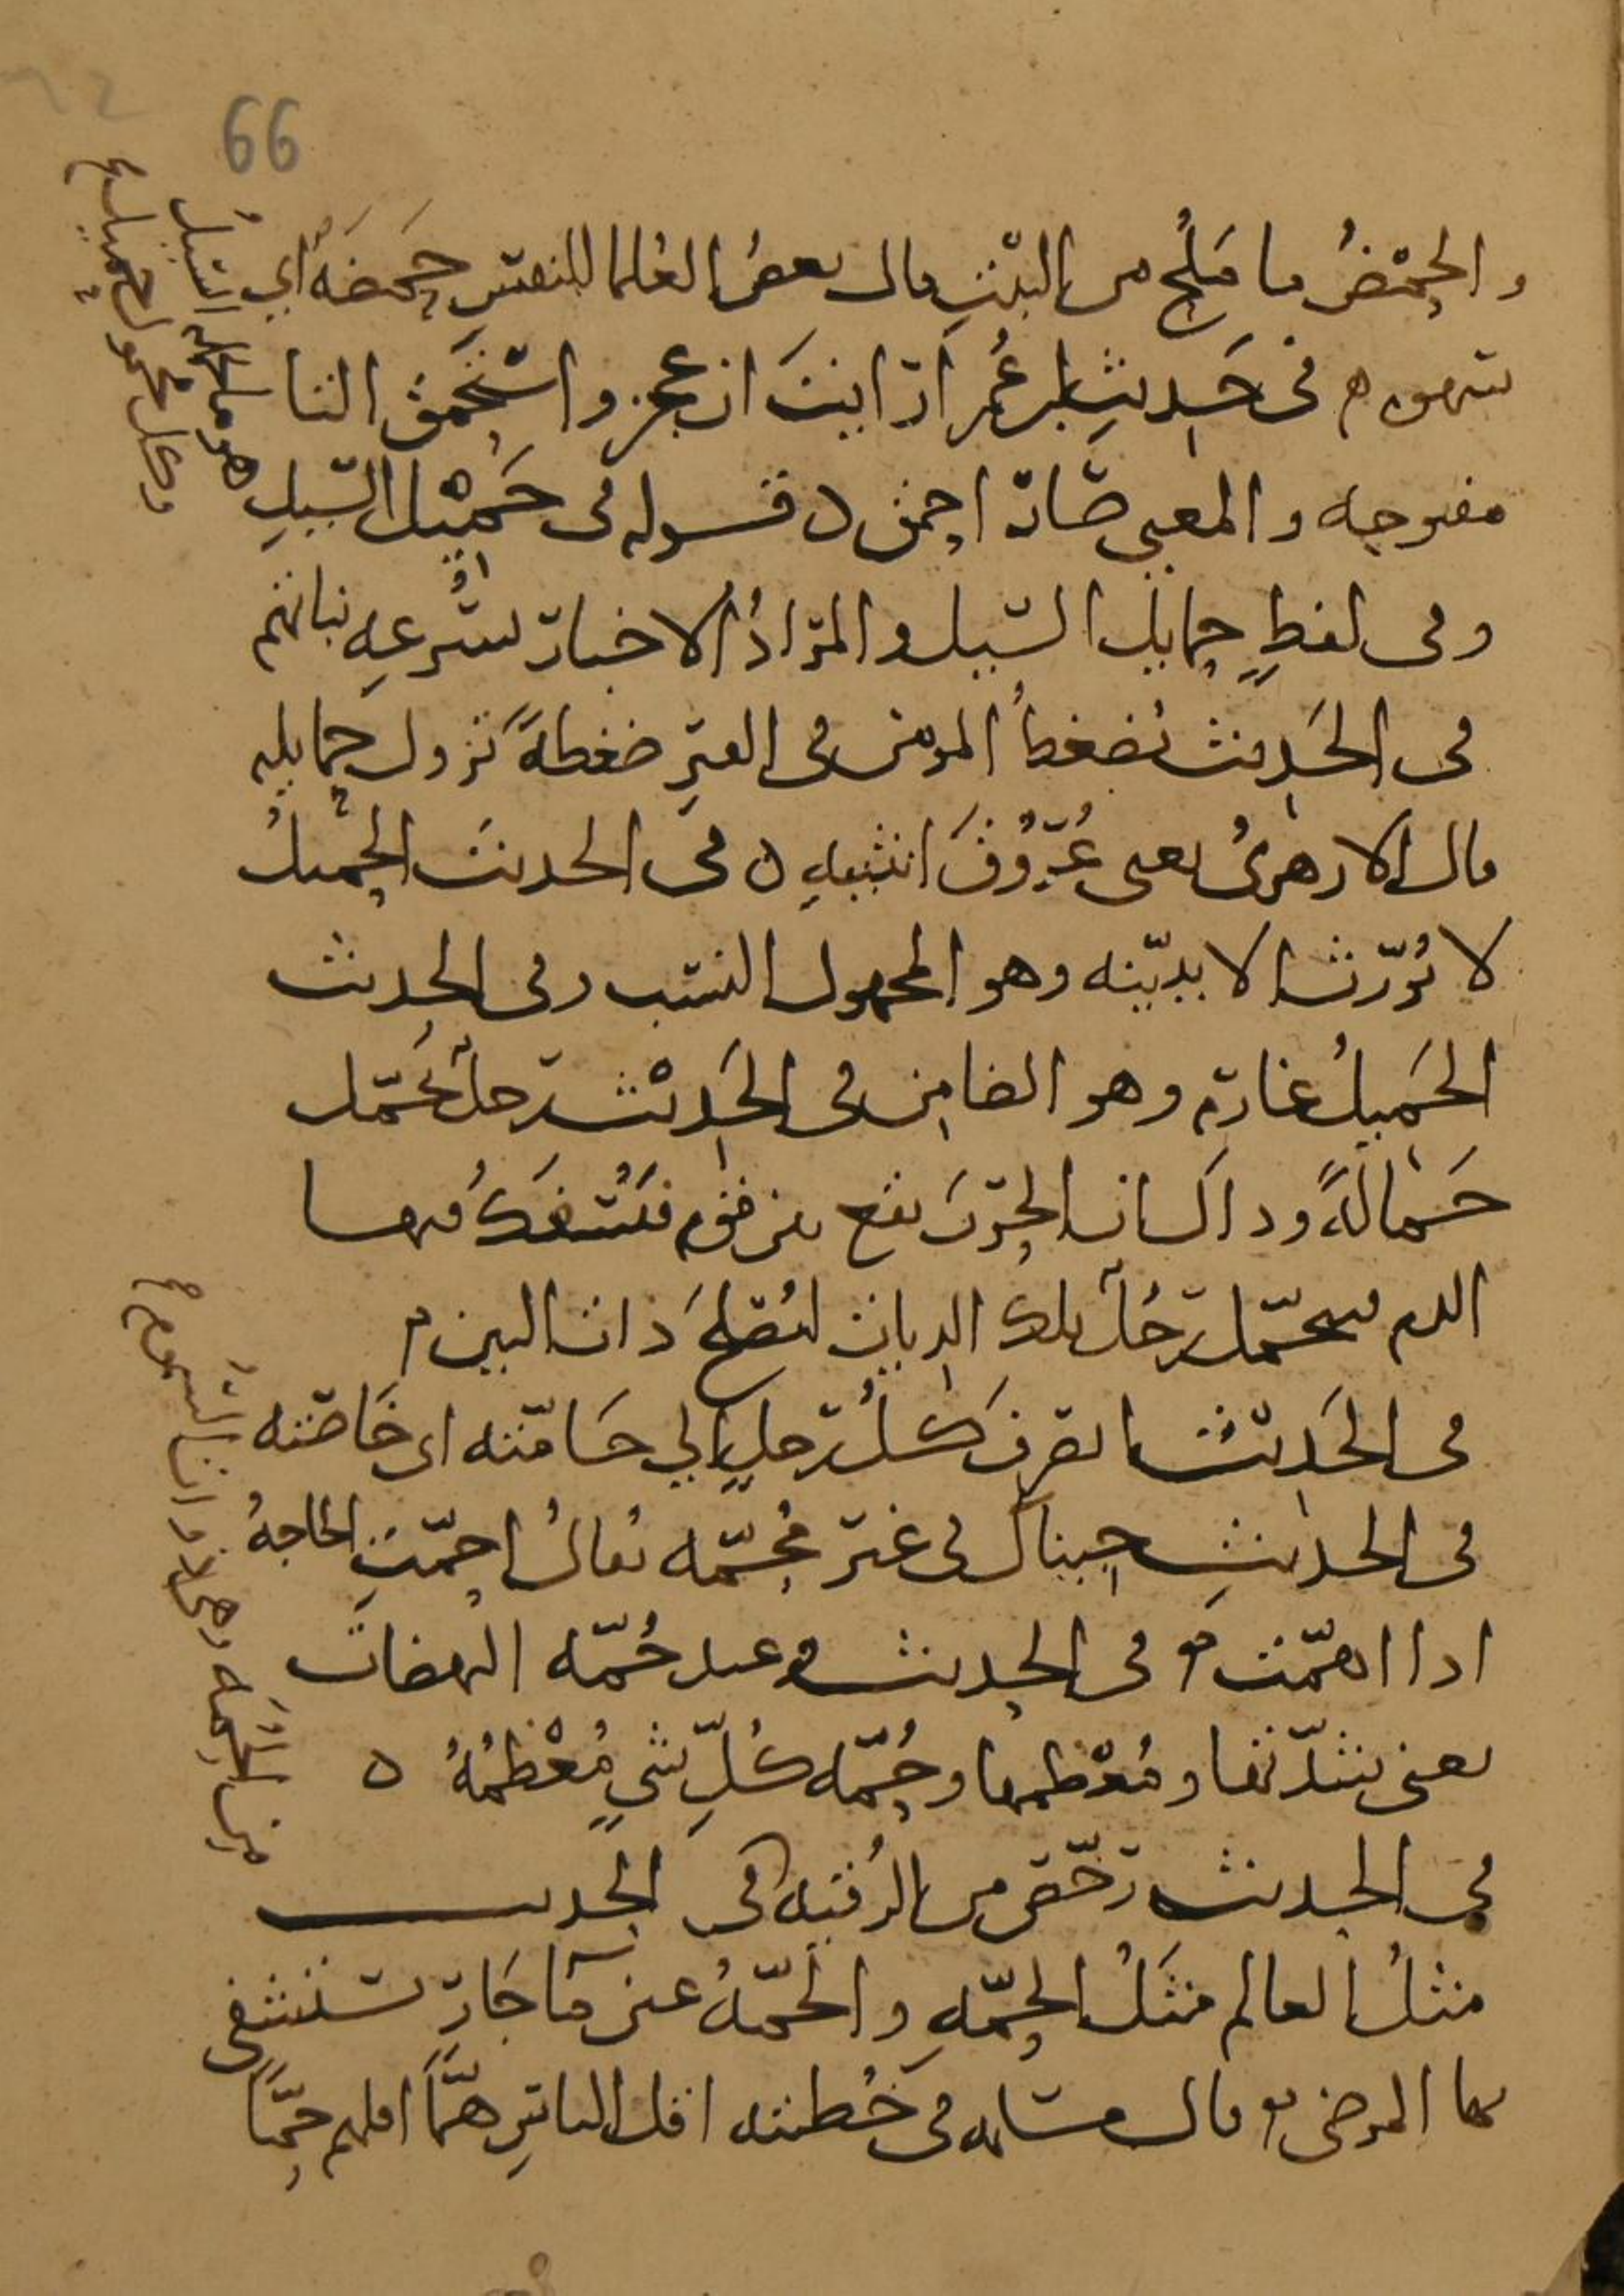 66
والحمضُ ما مَلُح من النبت قال بعض العلما للنفس حَمَضَةٌ أي
شهوه في حَديثِ ابن عُمر ارايتَ ان عجز واسْتَحمَقَ التا
مفتوحه والمعنى صَارَ احمق ٥ قوله في حَمِيْل السَّيلِ
وفي لفظٍ حمايل السَّيل والمرَادُ الاخبارُ بسُرعهِ نباتهم
في الحَديث يُضغطُ المومن في القبرِ ضغطةً تزول حمايله
قال الازهريُّ يعني عُرُوقَ انثييهِ ٥ في الحديث الحميلُ
لا يُورَّث الا ببيّنه وهو المحمول النسَب وفي الحديث
الحَميلُ غارِم وهو الضامِن في الحَديْث رَجلٌ تحَمَّل
حَمَالَةً وذاك ان الحَربَ تقع بين قوم فَتُسْفَكُ فيها
الدم فيتحمّل رَجُلٌ تلك الديات ليُصْلحَ ذات البين
في الحَديث انصرفَ كُلُّ رَجلٍ إلي حَامَّته اي خَاصَّته
في الحديث جيناك في غير مُحِمّه يُقالُ احَمَّتِ الحاجهُ
اذا اهمّت في الحديث وعند حُمَّه النهضات
يعني شدّتها ومُعْظمها وحُمّه كُلِّ شيٍ مُعْظمُهُ ٥
في الحديث رخّص من الرُقيه في الحديث
مثلُ العالم مَثَلُ الحَمّهِ والحَمّهُ عين مَآ حَارٍّ يَستشفي
بها المرضى قال مسلمه في خُطبته اقل الناسِ هَمًّا اقلهم حَمًّا
هو ما حمله السيلُ
وكل محمول حميل ع
من الحُمَه وهي لا ذوات السموم ع